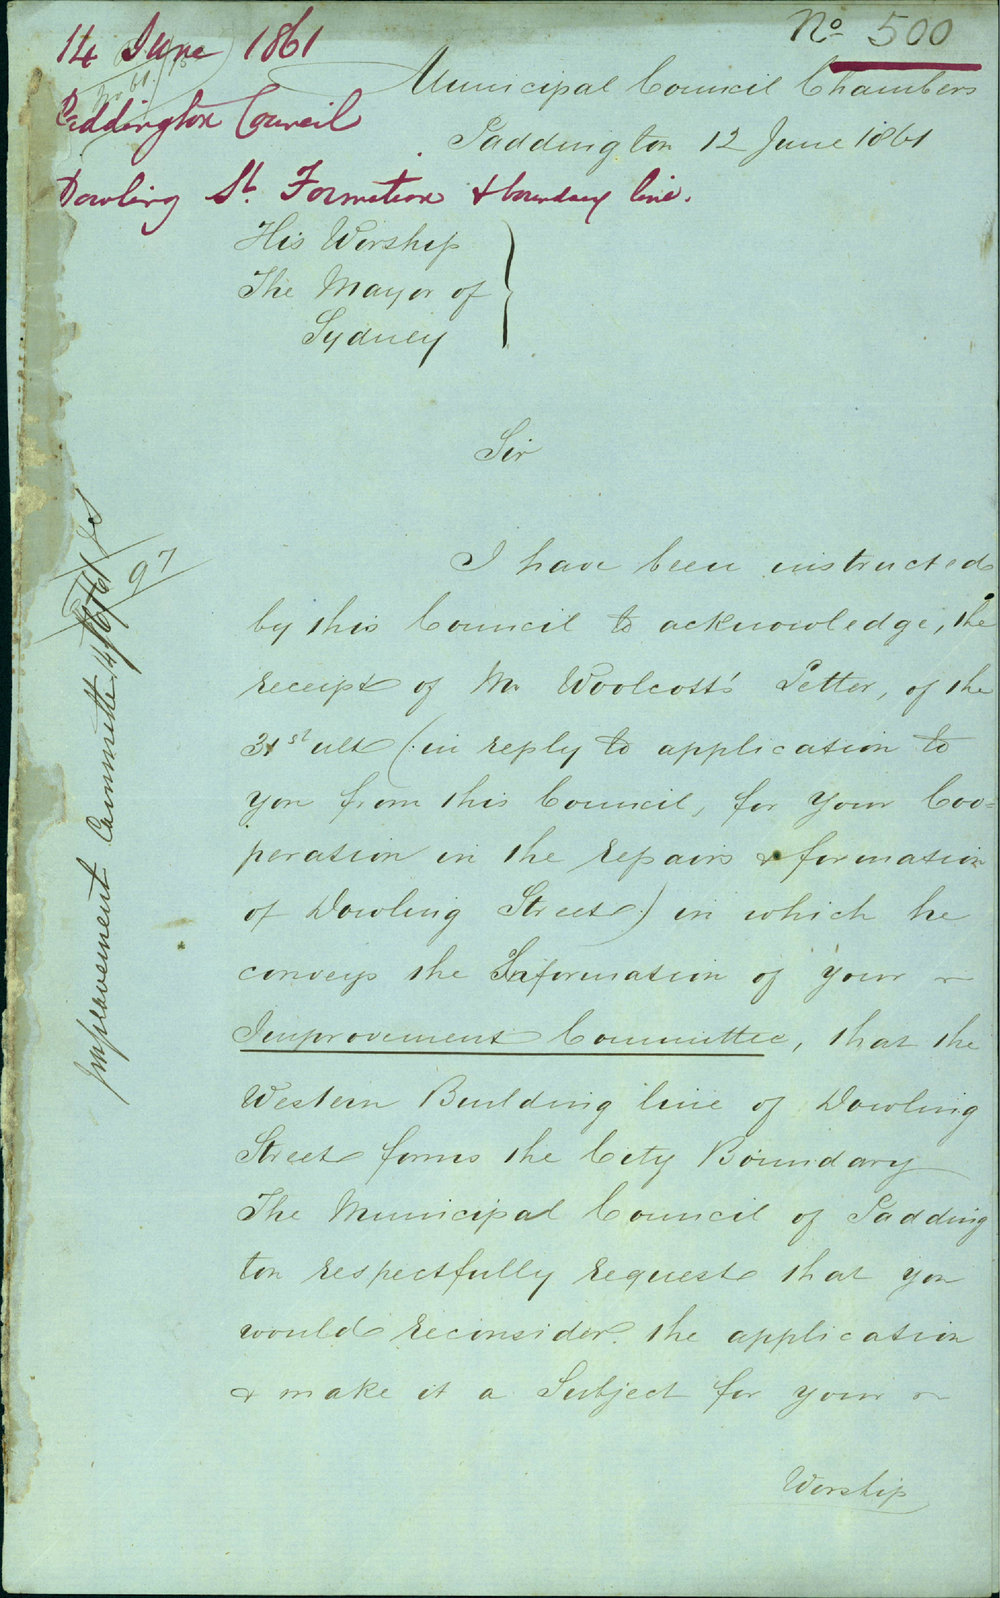 No 500
14 June 1861
Paddington Council
Dowling St. Formation & boundary line.
Municipal Council Chambers
Paddington 12 June 1861
His Worship
The Mayor of
Sydney
Sir
I have been instructed
by this Council to acknowledge, the
receipt of Mr Woolcott's Letter, of the
31st ult (in reply to application to
you from this Council, for your Coo=
peration in the repairs & formation
of Dowling Street) in which he
conveys the Information of your
Improvement Committee, that the
Western Building line of Dowling
Street forms the City Boundary
The Municipal Council of Padding
ton respectfully request that you
would reconsider the application
& make it a Subject for your
Worship
Improvement Committee
97